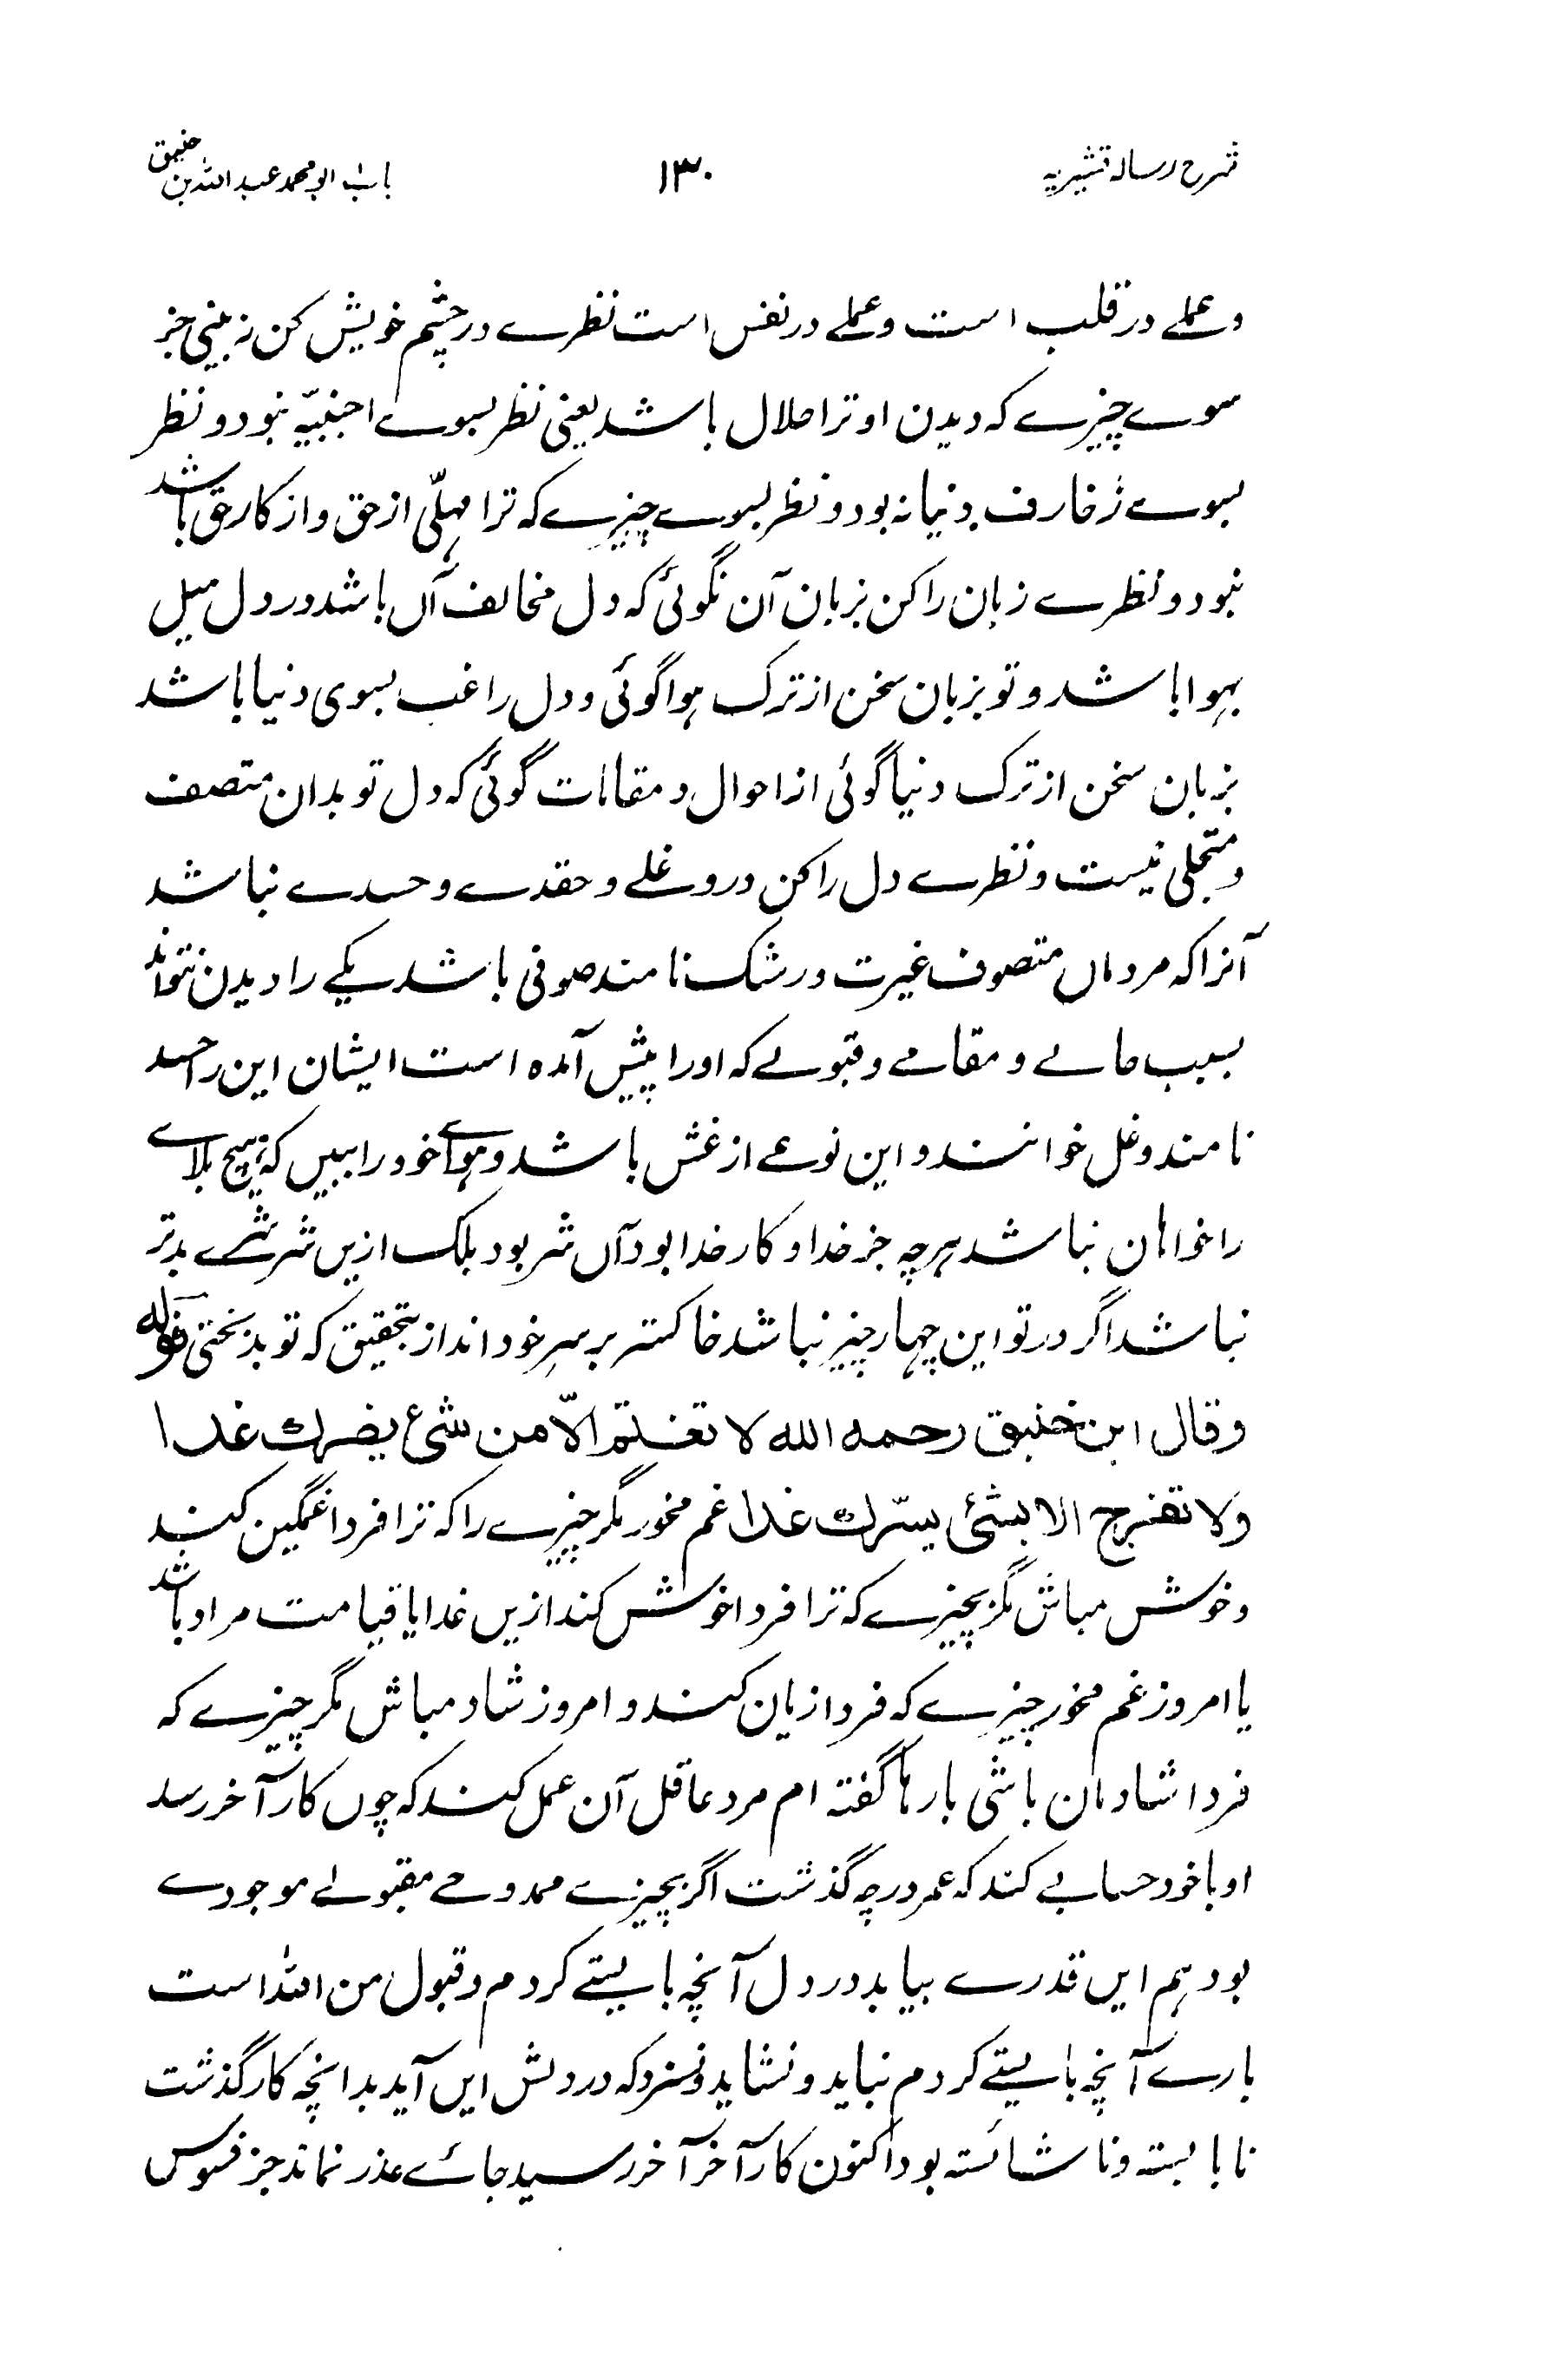 شرح رسالہ قشیریہ
۱۳۰
باب ابو محمد عبد اللہ بن خبیق
و عملے در قلب است و عملے در نفس است نظرے در چشم خویش کن نہ بینی جز
سوے چیزے کہ دیدن او ترا حلال باشد یعنی نظر بسوے اجنبیّہ نبود و نظر
بسوے زخارف دنیا نہ بود و نظر بسوے چیزے کہ ترا ملہّی از حق و از کار حق باشد
نبود و نظرے زبان را کن بزبان آن نگوئی کہ دل مخالف آں باشد و در دل میل
بہوا باشد و تو بزبان سخن از ترک ہوا گوئی و دل راغب بسوی دنیا باشد
بزبان سخن از ترک دنیا گوئی از احوال و مقامات گوئی کہ دل تو بدان متصف
و متجلی نیست و نظرے دل را کن درو غلے و حقدے و حسدے نباشد
آنرا کہ مرد ماں متصوف غیرت و رشک نامند صوفی باشد یکے را دیدن نتواند
بسبب حالے و مقامے و قبولے کہ اورا پیش آمدہ است ایشان این را حسد
نامند و غل خوانند و این نوعے از غش باشد و ہواے خود را ببیں کہ ہیچ بلاے
را خواہان نباشد ہرچہ جز خدا و کار خدا بود آں شر بود بلک ازیں شر شرے بدتر
نباشد اگر در تو این چہار چیز نباشد خاکستر بر سر خود انداز بتحقیق کہ تو بدبختی قولہ
وقال ابن خبیق رحمه الله لا تغتم الّا من شیء یضرك غدا
ولا تفرح الا بشیٔ یسّرك غدا غم مخور مگر چیزے را کہ ترا فردا غمگین کند
و خوش مباش مگر بچیزے کہ ترا فردا خوش کند ازیں غدا یا قیامت مراد باشد
یا امروز غم مخور چیزے کہ فردا زیان کند و امروز شاد مباش مگر چیزے کہ
فردا شادمان باشی بارہا گفتہ ام مرد عاقل آن عمل کند کہ چوں کار آخر رسد
او با خود حسابے کند کہ عمر درچہ گذشت اگر بچیزے ممدوحے مقبولے موجودے
بود ہم ایں قدرے بیابد در دل آنچہ بایستے کردم و قبول من اللہ است
بارے آنچہ بایستے کردم نباید و نشاید و نسزد کہ در دلش ایں آید بدانچہ کار گذشت
نابایستہ و ناشائستہ بود اکنون کار آخر آخر رسید جائے عذر نماند جز فسوس